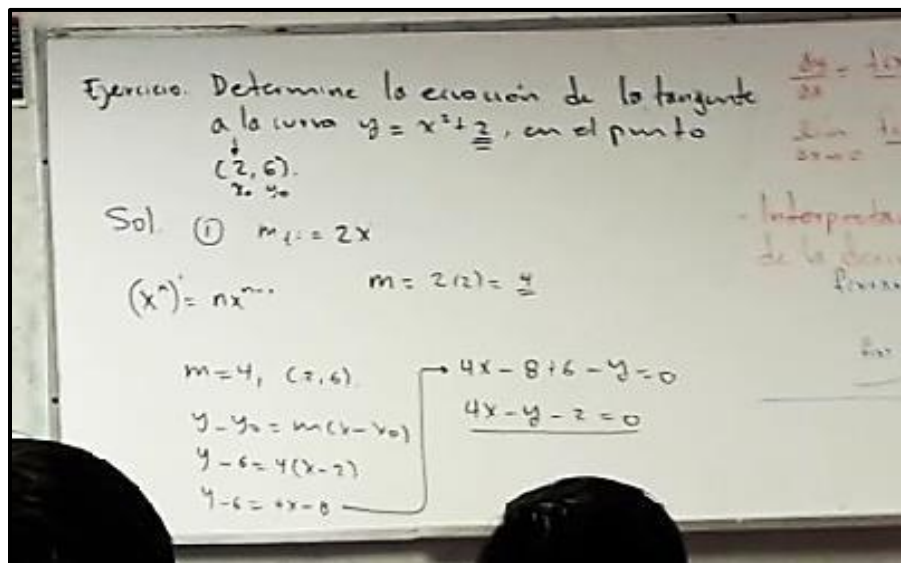 Ejercicio. Determine la ecuación de la tangente
a la curva y = x² + 2, en el punto
(2, 6).
x₀ y₀
Sol. ① m = 2x
(xⁿ)' = nxⁿ⁻¹
m = 2(2) = 4
m = 4, (2, 6)
y - y₀ = m(x - x₀)
y - 6 = 4(x - 2)
y - 6 = 4x - 8
4x - 8 + 6 - y = 0
4x - y - 2 = 0
- Interpreta
de la